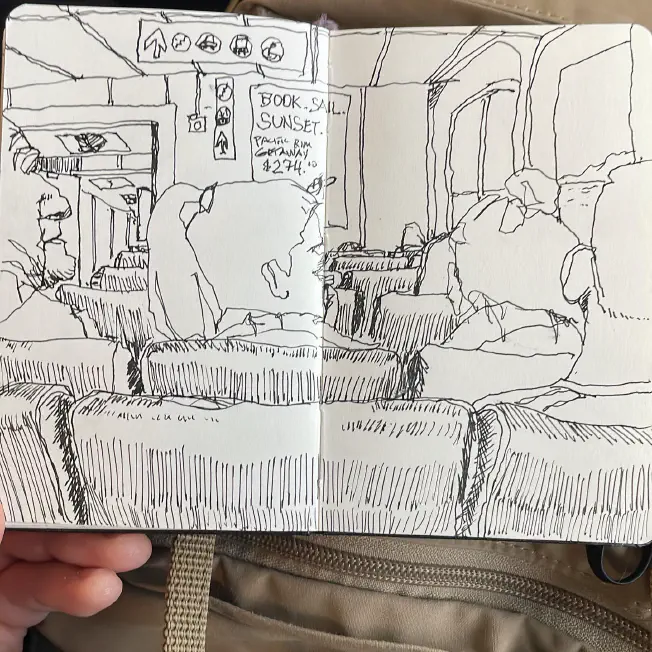 BOOK. SAIL.
SUNSET.
PACIFIC RIM
GETAWAY
$274.00